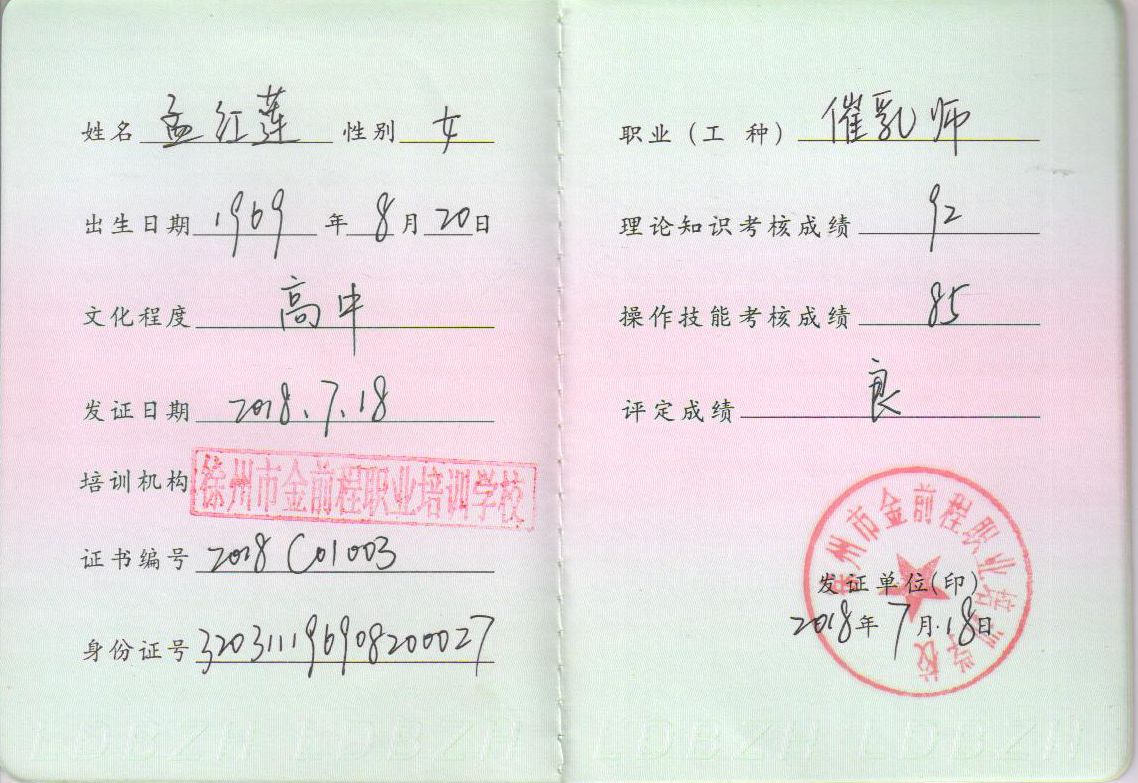 姓名 孟红莲 性别 女
出生日期 1969 年 8 月 20 日
文化程度 高中
发证日期 2018.7.18
培训机构 徐州市金前程职业培训学校
证书编号 2018 C01003
身份证号 320311196908200027
职业(工 种) 催乳师
理论知识考核成绩 92
操作技能考核成绩 85
评定成绩 良
徐州市金前程职业培训学校
发证单位(印)
2018年7月18日
LDBZH LDBZH LDBZH LDBZH